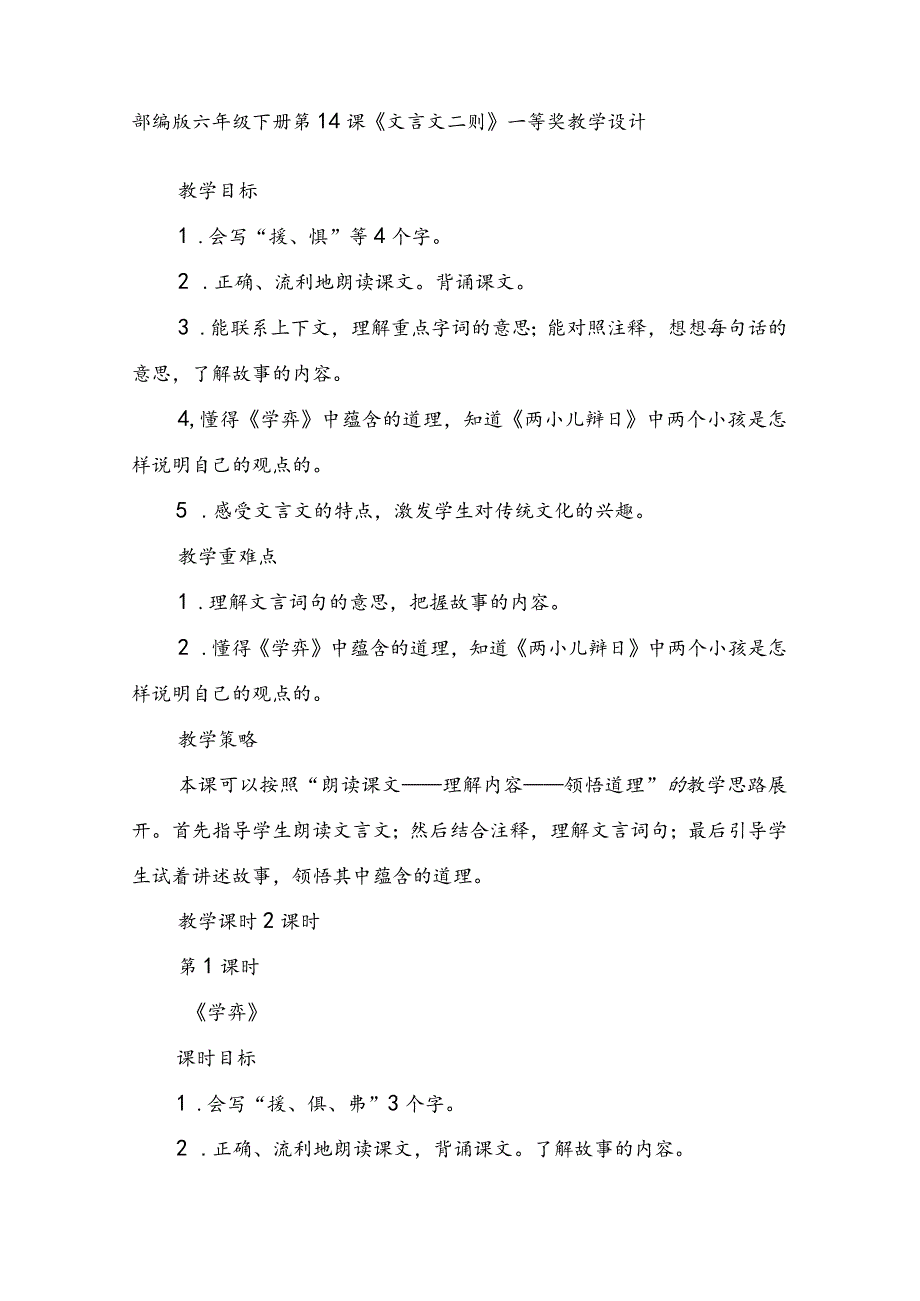 部编版六年级下册第14课《文言文二则》一等奖教学设计
教学目标
1 .会写“援、惧”等4个字。
2 .正确、流利地朗读课文。背诵课文。
3 .能联系上下文，理解重点字词的意思；能对照注释，想想每句话的
意思，了解故事的内容。
4,懂得《学弈》中蕴含的道理，知道《两小儿辩日》中两个小孩是怎
样说明自己的观点的。
5 .感受文言文的特点，激发学生对传统文化的兴趣。
教学重难点
1 .理解文言词句的意思，把握故事的内容。
2 .懂得《学弈》中蕴含的道理，知道《两小儿辩日》中两个小孩是怎
样说明自己的观点的。
教学策略
本课可以按照“朗读课文——理解内容——领悟道理”的教学思路展
开。首先指导学生朗读文言文；然后结合注释，理解文言词句；最后引导学
生试着讲述故事，领悟其中蕴含的道理。
教学课时2课时
第1课时
《学弈》
课时目标
1 .会写“援、俱、弗”3个字。
2 .正确、流利地朗读课文，背诵课文。了解故事的内容。